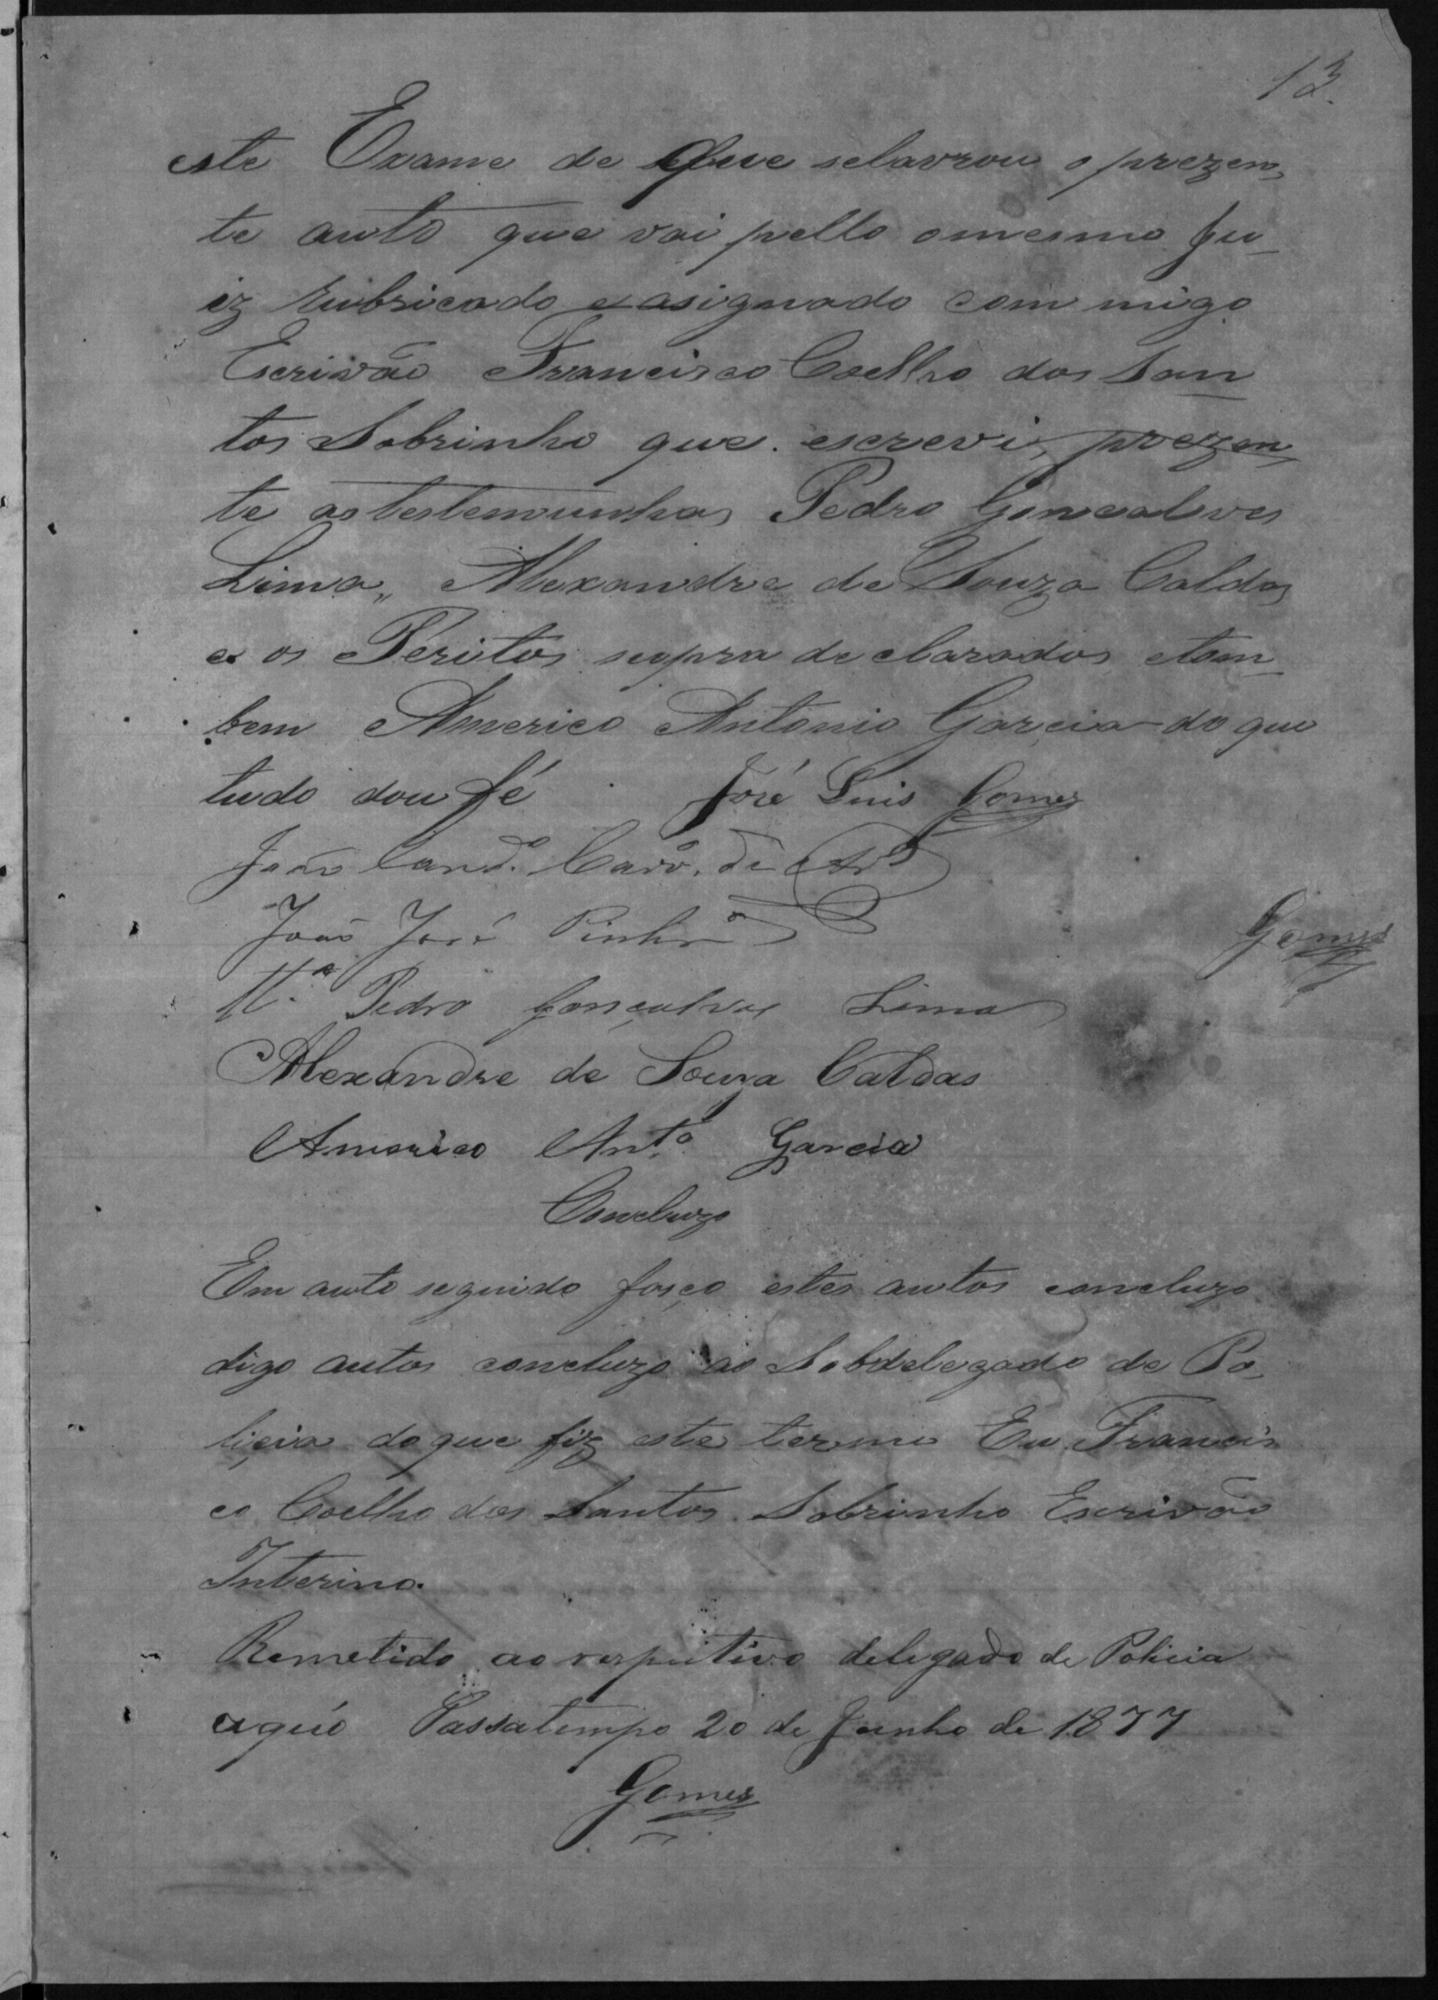 13.
este Exame de que selavrou o prezen,
te auto que vai pello omesmo Ju-
iz rubricado e asignado com migo
Escrivão Francisco Coelho dos San
tos Sobrinho que escrevi, prezen
te as testemunhas Pedro Goncalves
Lima, Alexandre de Souza Caldas
e os Peritos supra declarados etam-
bem Americo Antonio Garcia do que
tudo dou fé José Luis Gomes
João Cand.º Carv.º de
João José Pinhr.º
Gomes
Pedro Gonçalves Lima
Alexandre de Souza Caldas
Americo Ant.º Garcia
Concluzo
Em auto seguido fasço estes autos concluzo
digo autos concluzo ao Sobdelegado de Po-
liçia do que fiz este termo Eu Francis
co Coelho dos Santos Sobrinho Escrivão
Interino.
Remetido ao respectivo delegado de Policia
Passatempo 20 de Junho de 1877
Gomes